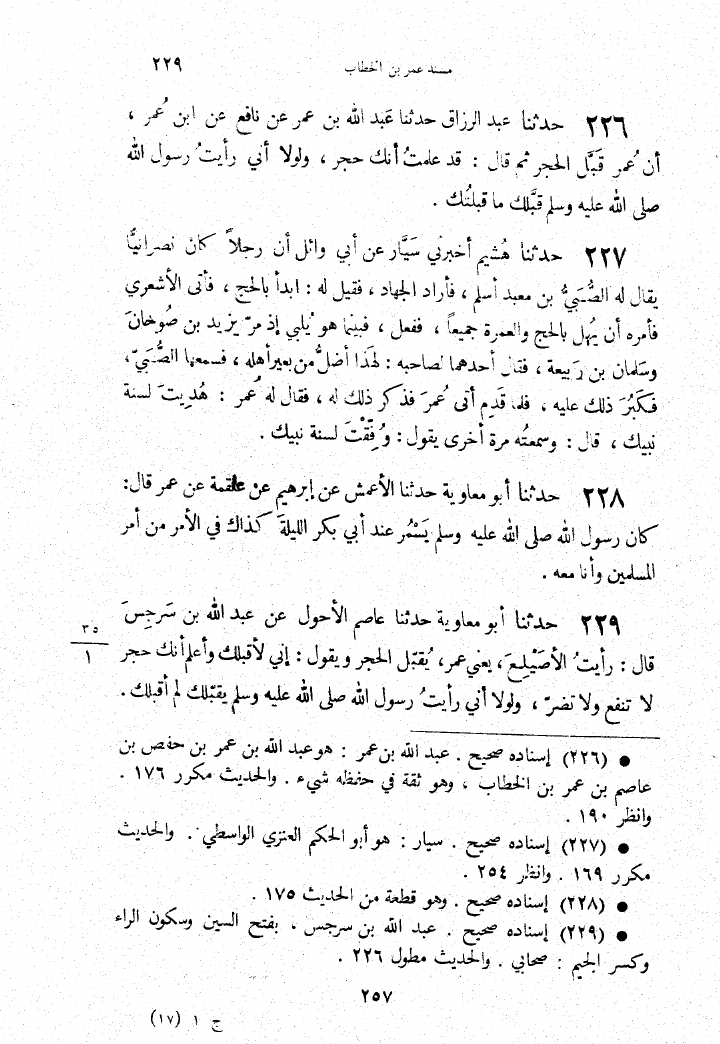 مسند عمر بن الخطاب ٢٢٩
٢٢٦ حدثنا عبد الرزاق حدثنا عَبد الله بن عمر عن نافع عن ابن عُمر ،
أن عُمر قَبَّل الحجر ثم قال : قد علمتُ أنك حجر ، ولولا أني رأيتُ رسول الله
صلى الله عليه وسلم قبَّلك ما قبلتُك .
٢٢٧ حدثنا هُشيم أخبرني سَيَّار عن أبي وائل أن رجلاً كان نصرانيًّا
يقال له الصُّبَيُّ بن معبد أسلم ، فأراد الجهاد ، فقيل له : ابدأ بالحج ، فأتى الأشعري
فأمره أن يُهل بالحج والعمرة جميعاً ، ففعل ، فبينما هو يُلبي إذ مرّ يزيد بن صُوخانَ
وسَلمان بن رَبيعة ، فقال أحدهما لصاحبه : لهذا أضلُّ من بعير أهله ، فسمعها الصُّبَيّ ،
فكَبُرَ ذلك عليه ، فلما قَدِم أتى عُمرَ فذكر ذلك له ، فقال له عُمر : هُديتَ لسنة
نبيك ، قال : وسمعتُه مرة أخرى يقول : وُفِّقْتَ لسنة نبيك .
٢٢٨ حدثنا أبو معاوية حدثنا الأعمش عن إبرهيم عن علقمة عن عمر قال :
كان رسول الله صلى الله عليه وسلم يَسْمُر عند أبي بكر الليلةَ كذاك في الأمر من أمر
المسلمين وأنا معه .
٢٢٩ حدثنا أبو معاوية حدثنا عاصم الأحول عن عبد الله بن سَرجِسَ
٣٥
١
قال : رأيتُ الأصَيْلِعَ ، يعني عمر ، يُقبّل الحجر ويقول : إني لأقبلك وأعلم أنك حجر
لا تنفع ولا تضرّ ، ولولا أني رأيتُ رسول الله صلى الله عليه وسلم يقبّلك لم أقبلك .
● (٢٢٦) إسناده صحيح . عبد الله بن عمر : هو عبد الله بن عمر بن حفص بن
عاصم بن عمر بن الخطاب ، وهو ثقة في حفظه شيء . والحديث مكرر ١٧٦ .
وانظر ١٩٠ .
● (٢٢٧) إسناده صحيح . سيار : هو أبو الحكم العنزي الواسطي . والحديث
مكرر ١٦٩ . وانظر ٢٥٤ .
● (٢٢٨) إسناده صحيح . وهو قطعة من الحديث ١٧٥ .
● (٢٢٩) إسناده صحيح . عبد الله بن سرجس ، بفتح السين وسكون الراء
وكسر الجيم : صحابي . والحديث مطول ٢٢٦ .
٢٥٧
ج ١ (١٧)